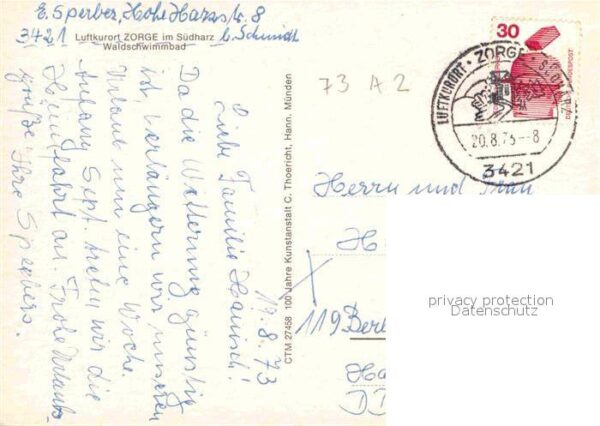 E. Sperber, Hohe Harzstr. 8
3421
b. Schmidt
Luftkurort ZORGE im Südharz
Waldschwimmbad
73 A 2
30
DEUTSCHE BUNDESPOST
LUFTKURORT · ZORGE · SÜDHARZ
20.8.73-8
3421
19.8.73
Liebe Familie Hanisch!
Da die Witterung günstig
ist, verlängern wir unseren
Urlaub um eine Woche.
Anfang Sept. treten wir die
Heimfahrt an. Frohe Urlaubs-
grüße Ihre Sperbers.
CTM 27458 100 Jahre Kunstanstalt C. Thoericht, Hann. Münden
Herrn und Frau
H
119 Berl
Ha
DD
privacy protection
Datenschutz